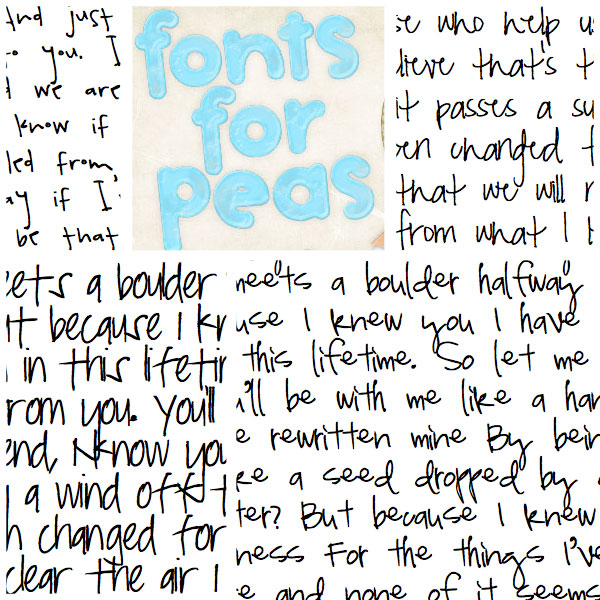 And just
you. I
we are
know if
from
if I
be that
fonts
for
peas
who help
that's
it passes a
changed
that we will
from what I
a boulder
it because I
in this
from you. You'll
know
a wind off
changed for
clear the air I
meets a boulder halfway
I knew you I have
this lifetime. So let me
be with me like a
rewritten mine By
a seed dropped by
But because I knew
For the things I've
and none of it seems